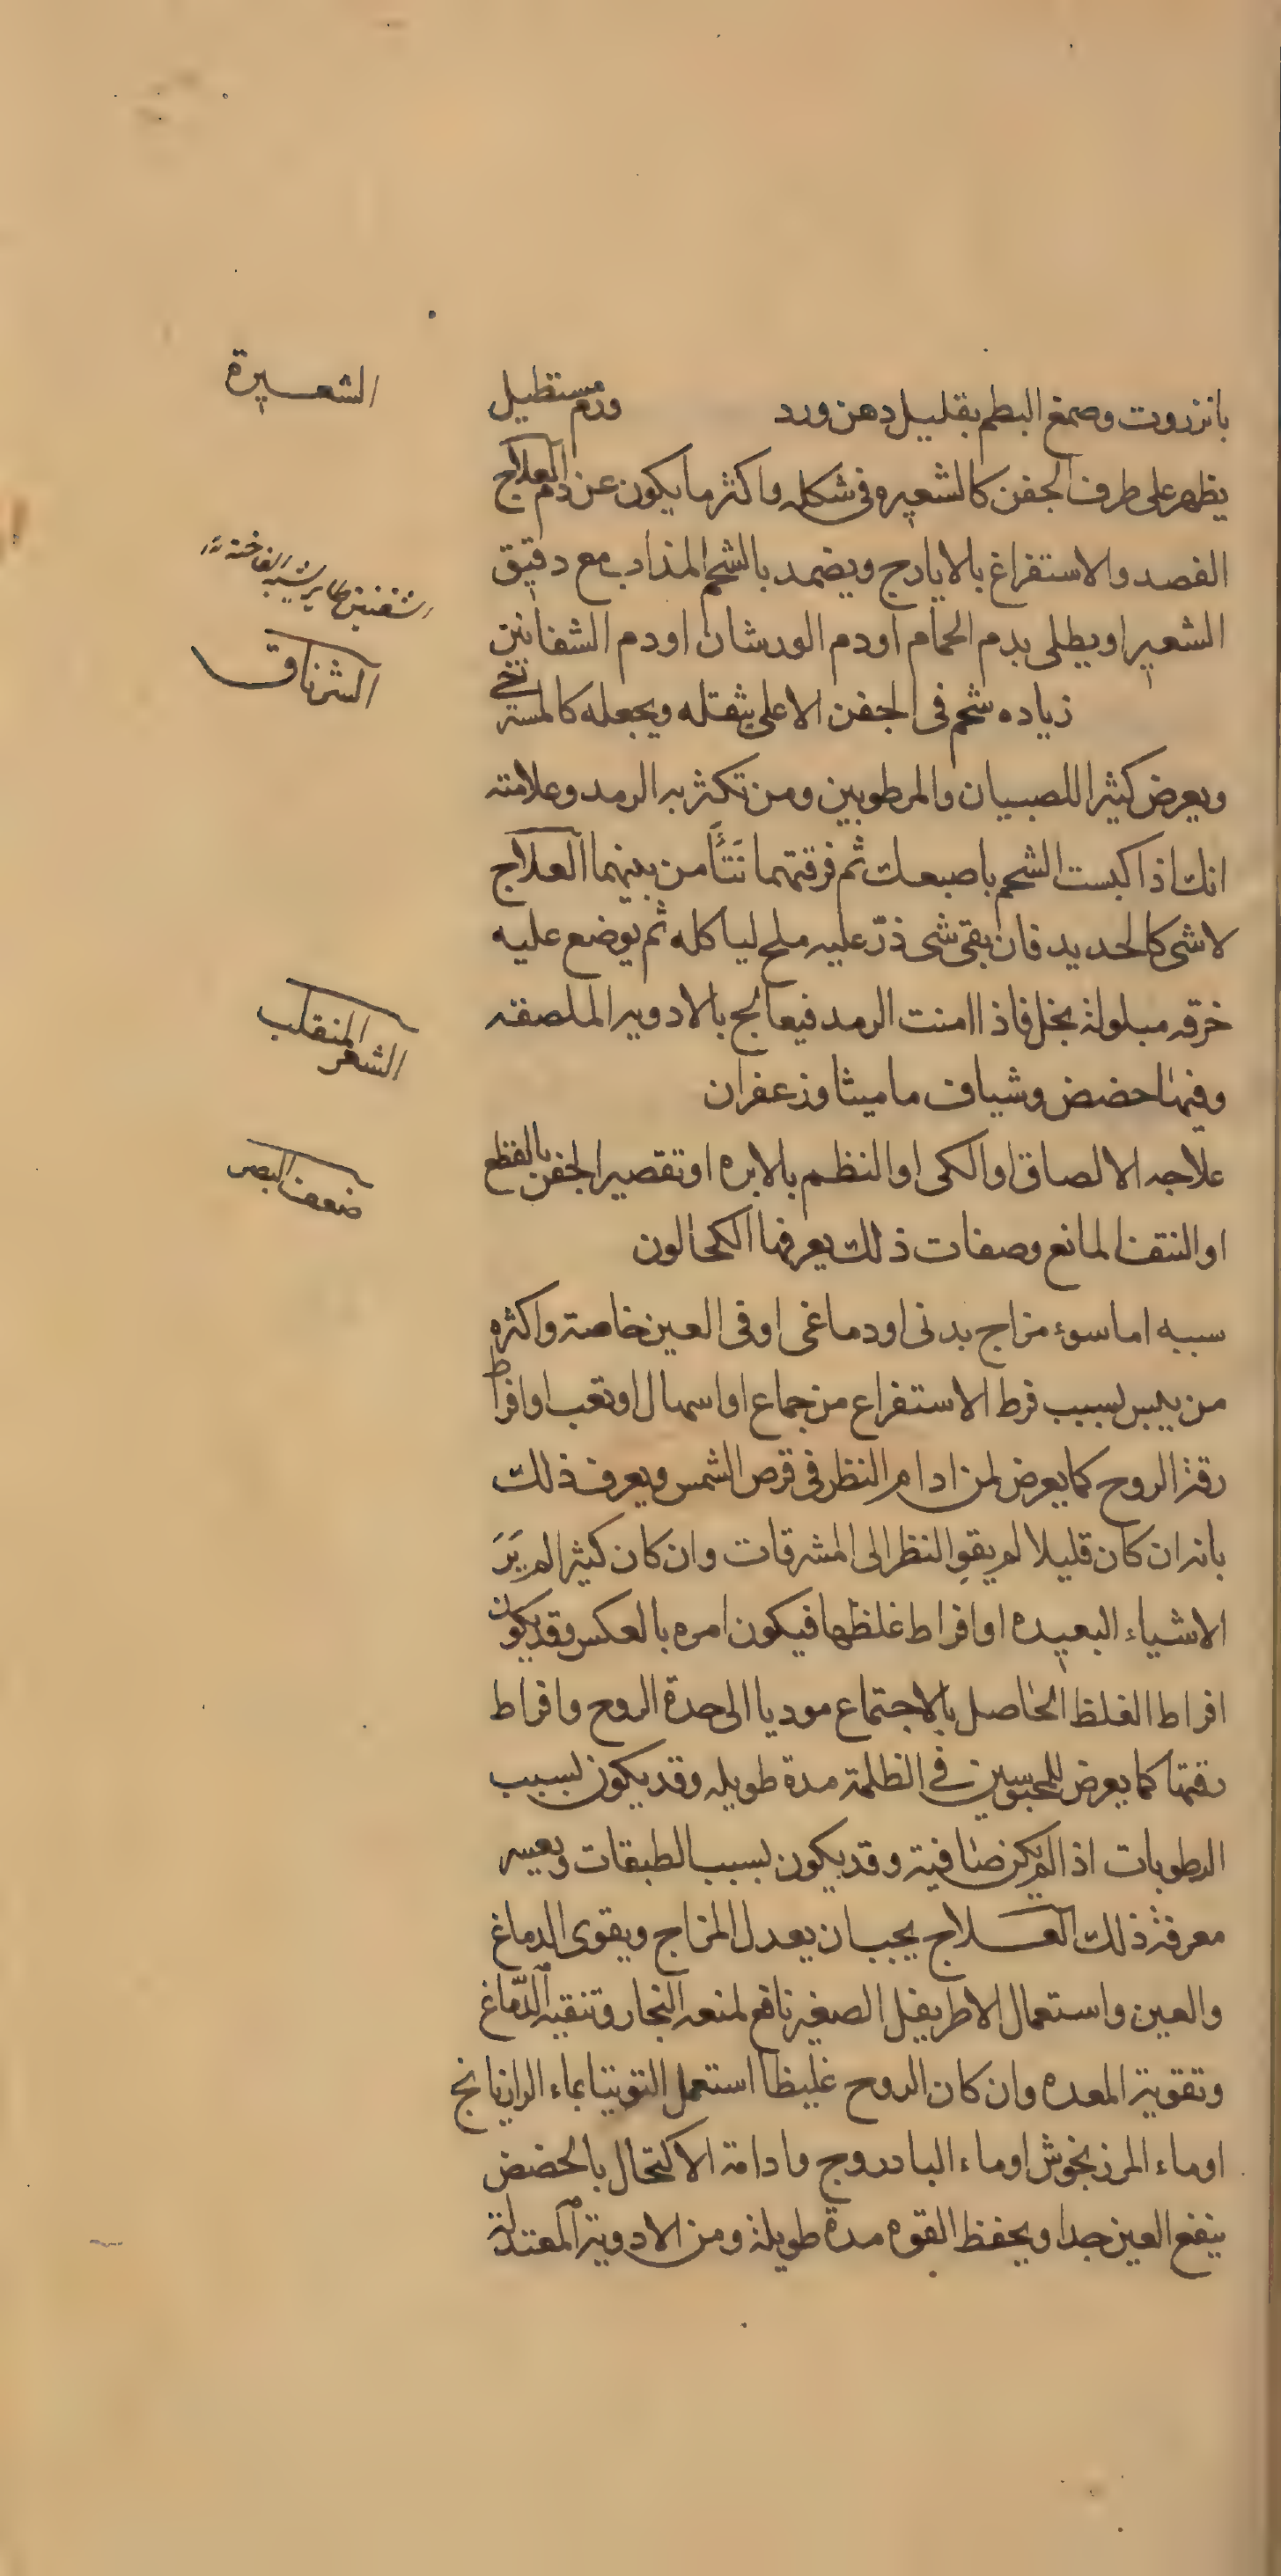 الشعيرة
بانزروت وصمغ البطم بقليل دهن ورد ورم مستطيل
يظهر على طرف الجفن كالشعيره فى شكله واكثر ما يكون عن دم العلاج
الفصد والاستفراغ بالايارج ويضمد بالشحم المذاب مع دقيق
شفنين طاير يشبه الفاخته
الشعير او يطلى بدم الحمام او دم الورشان او دم الشفانين
الشرناق
زياده شحم فى الجفن الاعلى يثقله ويجعله كالمسترخى
ويعرض كثيرا للصبيان والمرطوبين ومن تكثر به الرمد وعلامته
انك اذا كبست الشحم باصبعك ثم فرقتهما نَتَأَ من بينهما العلاج
لا شى كالحديد فان بقى شى ذرّ عليه ملح لياكله ثم يوضع عليه
خرقه مبلولة بخل فاذا امنت الرمد فيعالج بالادويه الملصقه
الشعر المنقلب
وفيها حضض وشياف ماميثا وزعفران
علاجه الالصاق او الكى او النظم بالابره او تقصير الجفن بالقطع
ضعف البصر
او النتف المانع وصفات ذلك يعرفها الكحالون
سببه اما سوء مزاج بدنى او دماغى او فى العين خاصة واكثره
من يبس بسبب فرط الاستفراغ من جماع او اسهال او تعب او افراط
رقة الروح كما يعرض لمن ادام النظر فى قرص الشمس ويعرف ذلك
بانه ان كان قليلا لم يقوِ النظر الى المشرقات وان كان كثيرا لم يَرَ
الاشياء البعيده او افراط غلظها فيكون امره بالعكس وقد يكون
افراط الغلظ الحاصل بالاجتماع موديا الى حدة الروح وافراط
رقتها كما يعرض للمحبوسين فى الظلمة مدة طويله وقد يكون بسبب
الرطوبات اذا لم يكن صافية وقد يكون بسبب الطبقات ويعسر
معرفة ذلك العلاج يجب ان يعدل المزاج ويقوى الدماغ
والعين واستعمال الاطريفل الصغير نافع لمنعه البخار وتنقيه الدّماغ
وتقوية المعده وان كان الروح غليظا استعمل التوتيا بماء الرازيانج
او ماء المرزنجوش او ماء البادروج وادامة الاكتحال بالحضض
ينفع العين جدا ويحفظ القوه مدة طويلة ومن الادوية المعتدلة